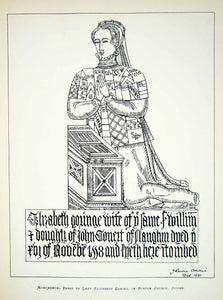 Elizabeth goringe wife of yͤ same Sʳ willim
& doughtʳ of John Covert of slaugham dyed yͤ
xvj of Novēbʳ 1558 and lyeth here ītombed
Del. 1891.
MONUMENTAL BRASS TO LADY ELIZABETH GORING, IN BURTON CHURCH, SUSSEX.